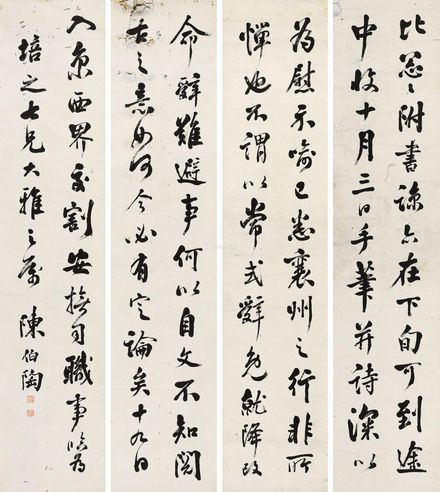 比忽忽附書諒只在下旬可到途
中收十月三日手筆并詩深以
為慰示喻已悉襄州之行非所
憚也不謂以常式辭免就降改
命辭難避事何以自文不知閱
古之意如何今必有定論矣十九日
入京西界交割安撫司職事臨為
培之七兄大雅之屬 陳伯陶